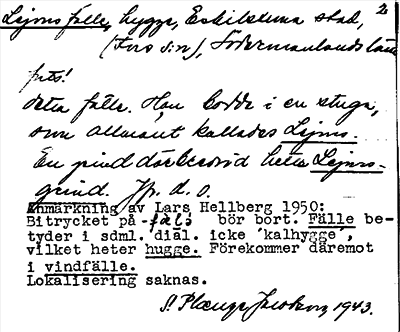 Lejons fälle, hygge, Eskilstuna stad, 2
(Fors s:n), Södermanlands län
forts!
detta fälle. Han bodde i en stuga,
som allmänt kallades Lejons.
En grind därbredvid hette Lejons-
grind. Jfr. d. o.
Anmärkning av Lars Hellberg 1950:
Bitrycket på -fäl- bör bort. Fälle be-
tyder i sdml. dial. icke 'kalhygge',
vilket heter hugge. Förekommer däremot
i vindfälle.
Lokalisering saknas.
1943.